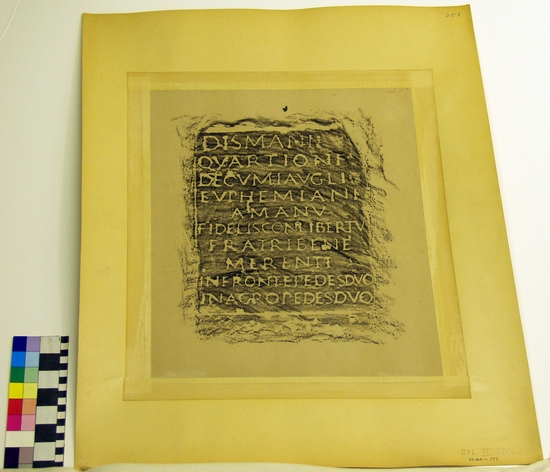 DISMANI
QVARTIONI
DECVMIAVGLI
EVPHEMIANI
AMANV
FIDELISCONLIBERTV
FRATRIBENE
MERENTI
INFRONTEPEDESDVO
INAGROPEDESDVO